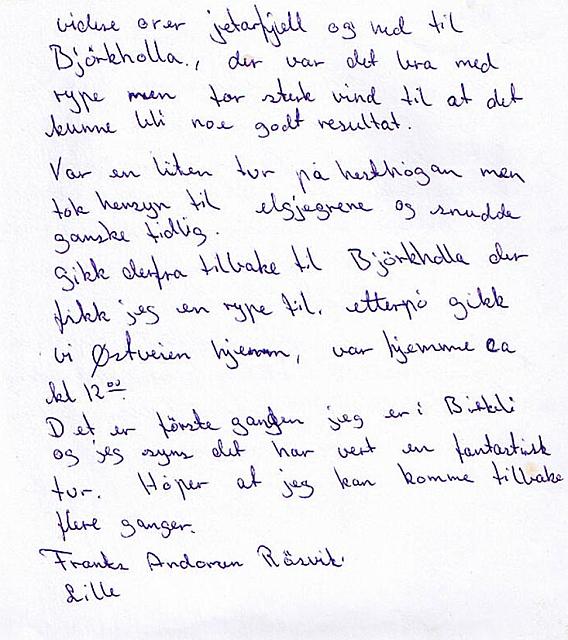 videre over jetarfjell og ned til
Björkholla., der var det bra med
rype men for sterk vind til at det
kunne bli noe godt resultat.
Var en liten tur på hesthögan men
tok hensyn til elgjegrene og snudde
ganske tidlig.
Gikk derfra tilbake til Björkholla der
fikk jeg en rype til. etterpå gikk
vi Østveien hjemm, var hjemme ca
kl 12 00
Det er förste gangen jeg er i Birkeli
og jeg syns det har vert en fantastisk
tur. Håper at jeg kan komme tilbake
flere ganger.
Rösvik.
Lille